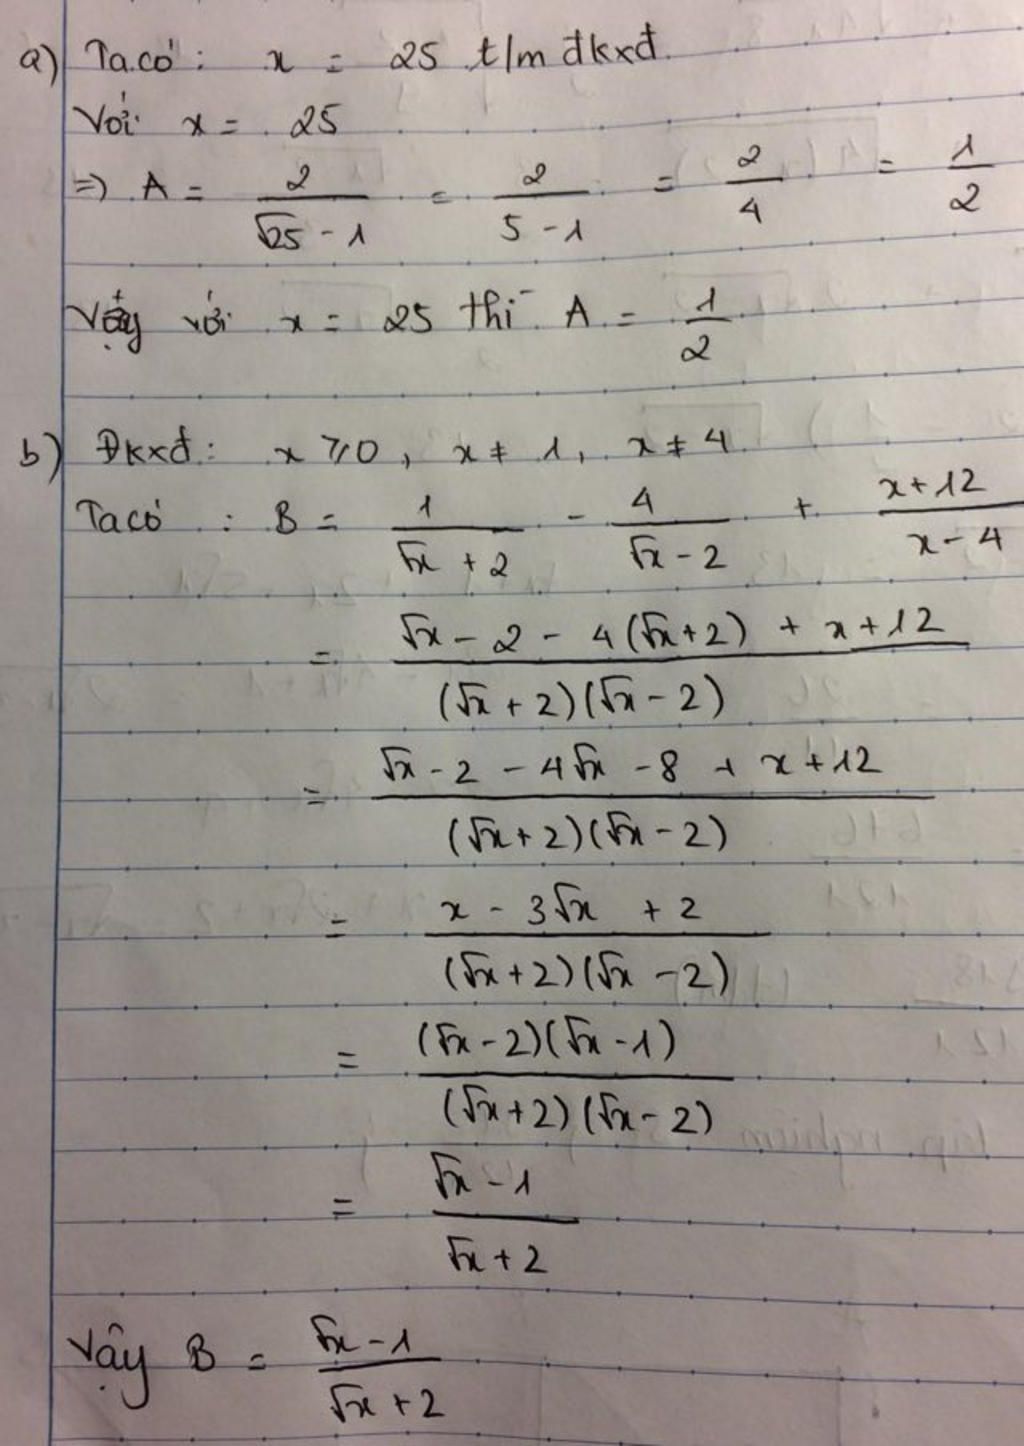 a) Ta có: x = 25 t/m đkxđ.
Với x = 25
=> A = 2/(√25 - 1) = 2/(5 - 1) = 2/4 = 1/2
Vậy với x = 25 thì A = 1/2
b) Đkxđ: x ⩾ 0, x ≠ 1, x ≠ 4
Ta có : B = 1/(√x + 2) - 4/(√x - 2) + (x + 12)/(x - 4)
= (√x - 2 - 4(√x + 2) + x + 12)/((√x + 2)(√x - 2))
= (√x - 2 - 4√x - 8 + x + 12)/((√x + 2)(√x - 2))
= (x - 3√x + 2)/((√x + 2)(√x - 2))
= ((√x - 2)(√x - 1))/((√x + 2)(√x - 2))
= (√x - 1)/(√x + 2)
Vậy B = (√x - 1)/(√x + 2)